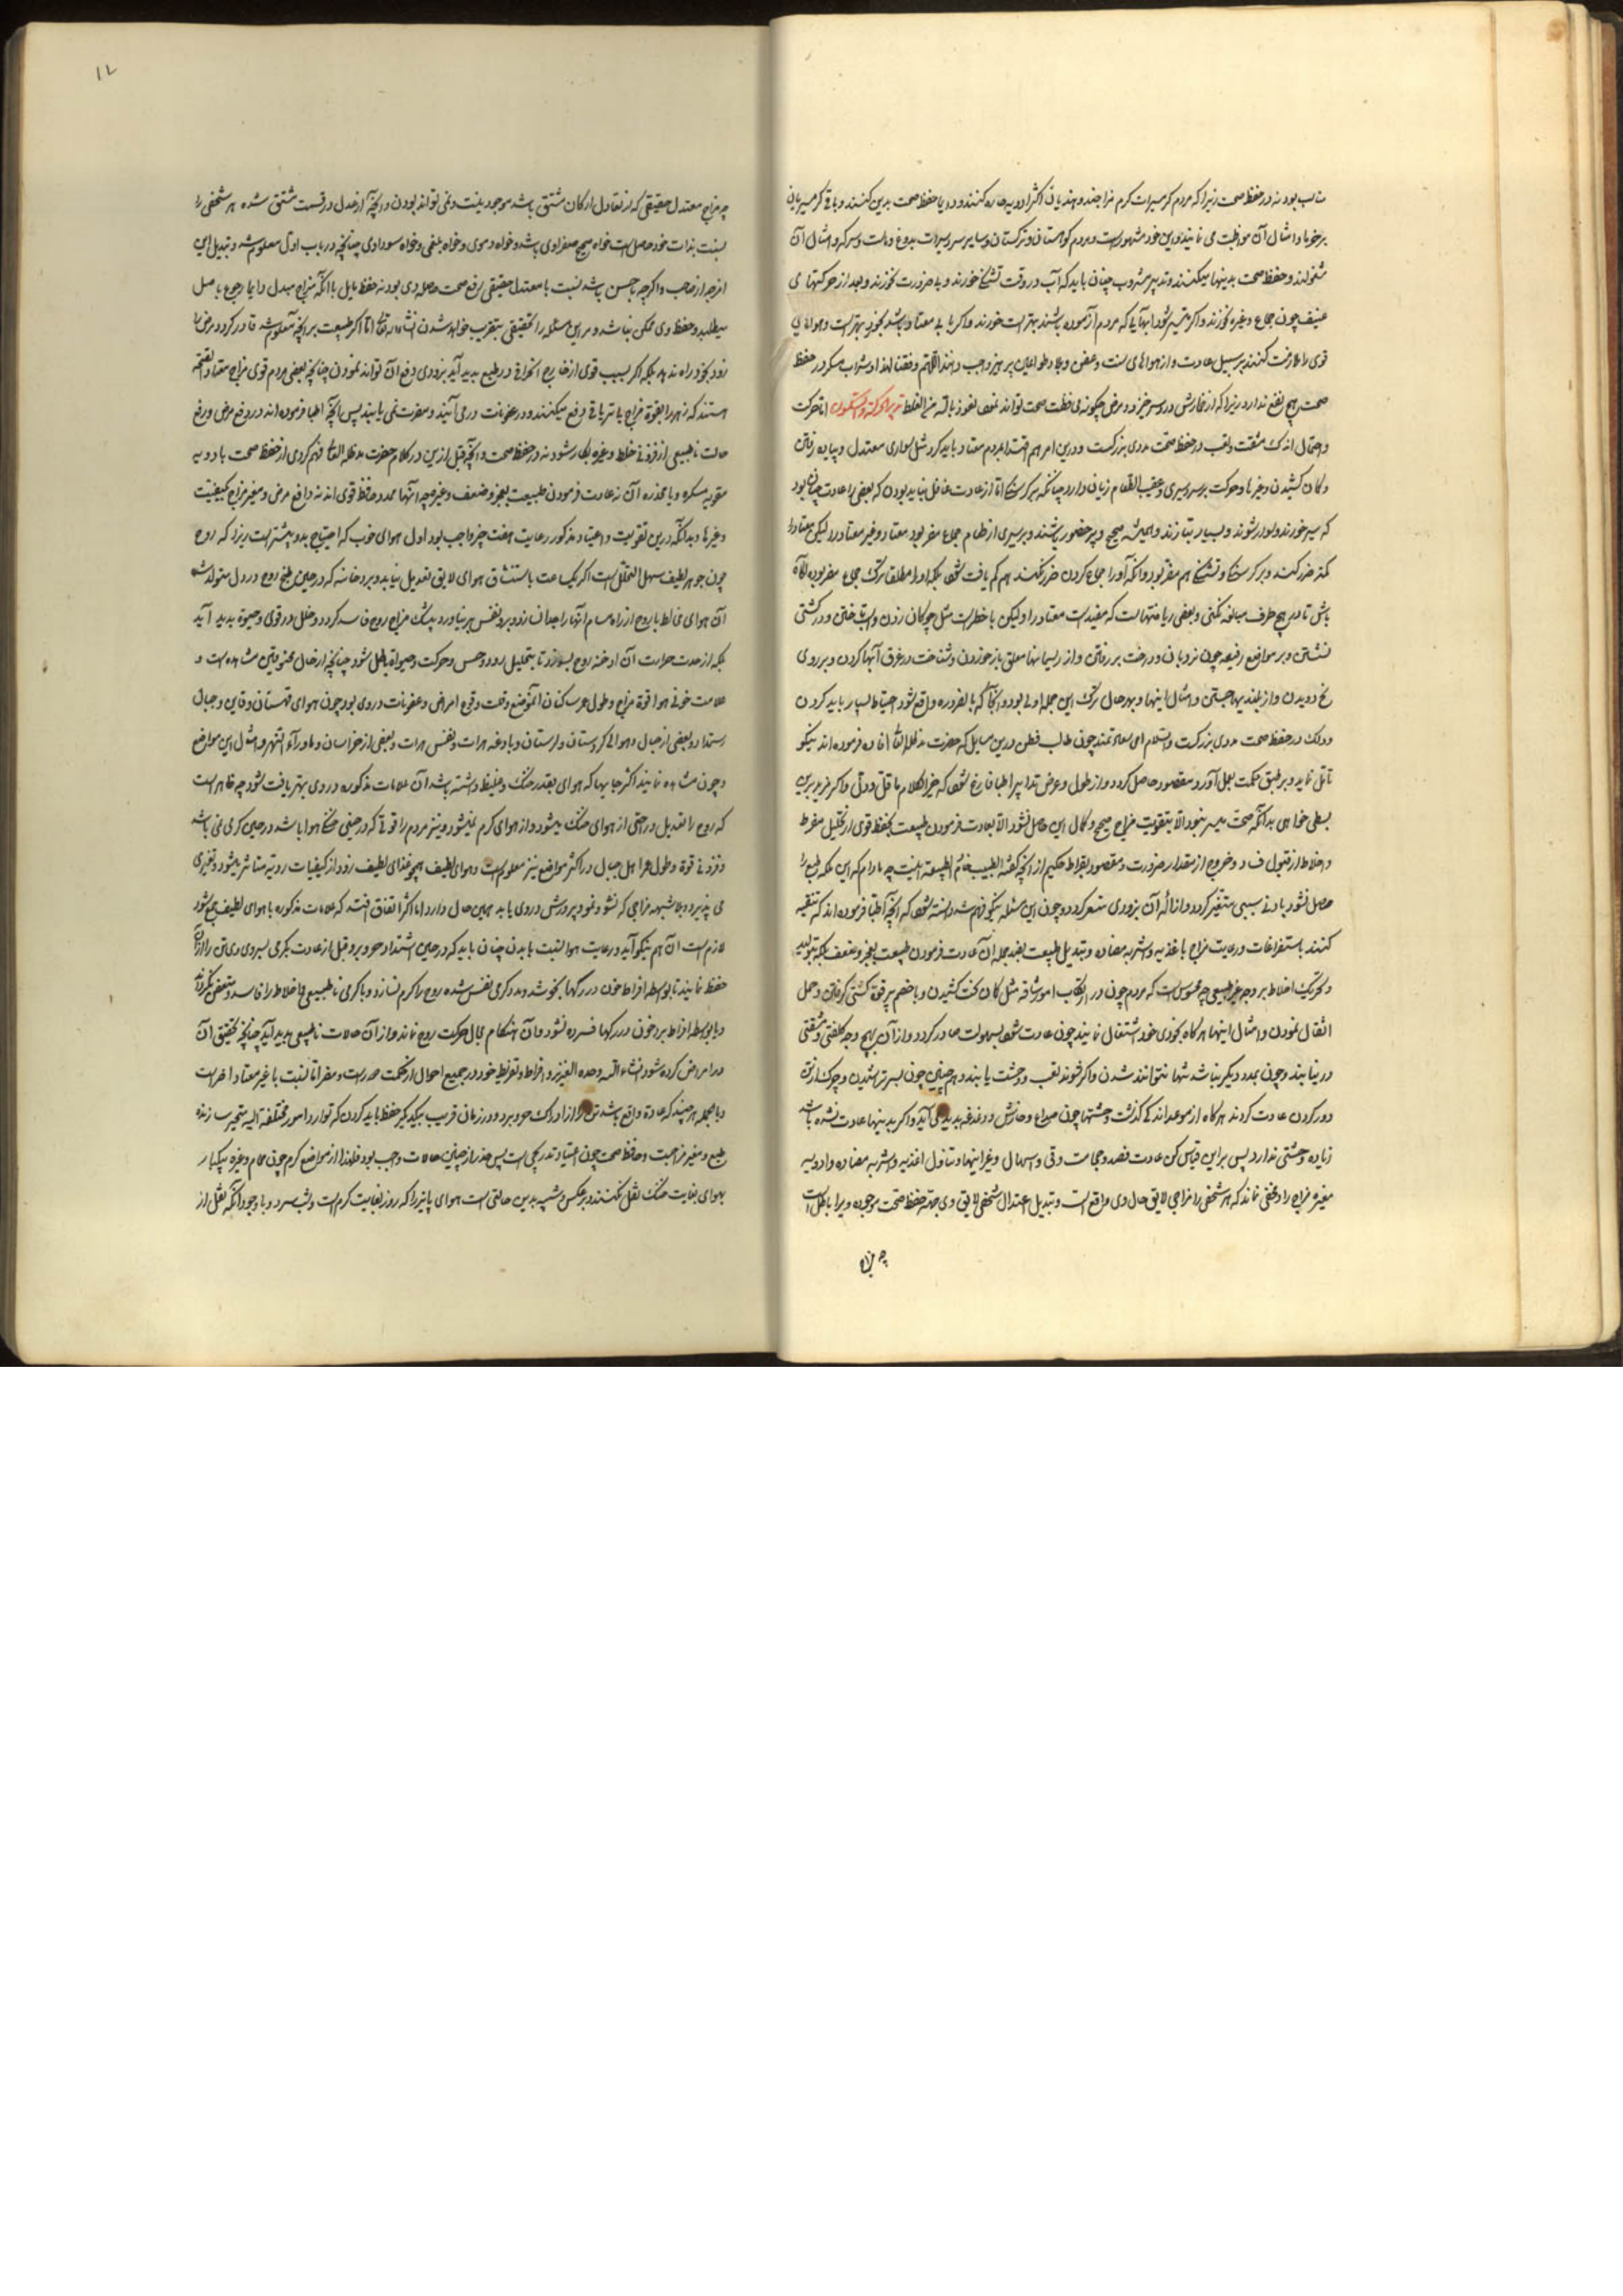 مناسب بود نه در حفظ صحت زیرا که مردم کرمسیرات کرم مزاجند و هندیان اکثر ادویه حاره کنند و دریا حفظ صحت بدین کنند و باقی کرمسیریان
بر خرما و امثال آن مواظبت می نمایند و این خود مشهورست و مردم کوهستان و ترکستان و سایر سردسیرات بدوغ و ماست و سرکه و امثال آن
مشغولند و حفظ صحت بدینها میکنند و تدبیر مشروب چنان باید که آب در وقت تشنگی خورند و بی ضرورت نخورند و بعد از حرکتهای
عنیف چون جماع و غیره نخورند و اکر میسر شود آبهایی که مردم آزموده باشند بهترست خورند
قوی را ملازمت کنند بر سبیل عادت و از هواهای و عفن و وبا و طواعین پرهیز واجب دانند اللهم وفقنا لهذا و شراب مسکر در حفظ
صحت هیچ نفع ندارد زیرا که از خمارش در دسر خیزد و مرض چکونه محافظت صحت تواند نمود نعوذ بالله من الغلط تدبیر الحرکة والسکون اما حرکت
و احتمال اندک مشقت و تعب در حفظ صحت مددی بزرکست و درین امر هم اقتدا بمردم معتاد باید کرد مثل سواری معتدل و پیاده رفتن
و کمان کشیدن و غیرها و حرکت بر سر سیری و عقیب الطعام زیان دارد چنانکه بر کرسنگی اما از عادت غافل نباید بودن که بعضی را عادت چنان بود
که سیر خورند و سوار شوند و بسیار بتازند و همیشه صحیح و پر حضور باشند و بر سیری از طعام جماع مضر بود معتاد و غیر معتاد را لیکن معتاد را
کمتر ضرر کند و بر کرسنگی و تشنگی هم مضر بود و آنکه او را جماع کردن ضرر نکند هم کم یافت شود بلکه او را مطلقا ترک جماع مضر بود آگاه
باش تا در هیچ طرف مبالغه نکنی و بعضی ریاضتهاست که مفیدست معتاد را ولیکن با خطرست مثل چوکان زدن و اسب تاختن و در کشتی
نشستن و بر مواضع رفیعه چون نردبان و درخت بر رفتن و از ریسمانها معلق باز خوردن و شناخت در غرق آبها کردن و بر روی
یخ دویدن و از بلندیها جستن و امثال اینها و بهر حال ترک این جمله اولی بود و آنجا که بالضروره واقع شود احتیاط بسیار باید کردن
و دلک در حفظ صحت مددی بزرکست والسلام ای سعادتمند چون طالب فطن درین مسایل که حضرت مد ظله العالی افاده فرموده اند نیکو
تأمل نماید و بر طبق حکمت بعمل آورد مقصود حاصل کردد و از طول و عرض تدابیر اطبا فارغ شود که خیر الکلام ما قل ودل و اکر مزید برین
بسطی خواهی بدانکه صحت میسر نبود الا بتقویت مزاج صحیح و کمال این حاصل نشود الا بعادت فرمودن طبیعت بحفظ قوی از تحلیل مفرط
و اخلاط از قبول فساد و خروج از مقدار ضرورت و مقصود بقراط حکیم از آنچه کفته الطبیب خادم الطبیعة اینست چه مادام که این ملکه طبع را
حاصل نشود بادنی سببی متغیر کردد و ازاله آن بزودی متعسر کردد و چون این مسئله نیکو فهم شد دانسته شود که آنچه اطبا فرموده اند که تنقیه
کنند باستفراغات و رعایت مزاج باغذیه و اشربه مضاده و تبدیل طبیعت بضد جمله آن عادت فرمودن طبیعت بعجز و ضعف بلکه بتولید
و تحریک اخلاط بر وجه غیر طبیعی چه محسوس است که مردم چون در ارتکاب امور شاقه مثل کمان سخت کشیدن و با خصم پر قوت کشتی کرفتن و حمل
اثقال نمودن و امثال اینها هرکاه بخودی خود اشتغال نمایند چون عادت شود بسهولت صادر کردد و از آن هیچ وجه کلفتی و مشقتی
درنیابند و چون بمدد دیکر نباشد تنها نتوانند شدن و اکر شوند تعب و وحشت یابند و همچنین چون بسر تراشیدن و چرک از تن
دور کردن عادت کردند هرکاه از موعد اندکی کذشت وحشتها چون صداع و خارش و دغدغه پدید می آید و اکر بدینها عادت نشده باشد
زیاده وحشتی ندارد پس برین قیاس کن عادت فصد و حجامت و قی و اسهال و غیر اینها و تناول اغذیه و اشربه مضاده و ادویه
مغیره مزاج را و مخفی نماند که هر شخصی را مزاجی لایق حال وی واقع است و تبدیل اعتدال شخصی لایق وی جهة حفظ صحت موجوده ویرا باطل است
چه مزاج
۱۲
چه مزاج معتدل حقیقی که از تعادل ارکان مشتق باشد موجود نیست و نمی تواند بودن و آنچه از عدل در قسمت مشتق شده هر شخصی را
نسبت بذات خود حاصل است خواه صحیح صفراوی باشد و خواه دموی و خواه بلغمی و خواه سوداوی چنانچه در باب اول معلوم شد و تبدیل این
مزاج از صاحب و اکرچه باحسن باشد نسبت با معتدل حقیقی رفع صحت حاصله وی بود نه حفظ بل با آنکه مزاج مبدل دایما رجوع باصل
میطلبد و حفظ وی ممکن نباشد و مر این مسئله را تحقیقی بتقریب خواهد شدن انشاء الله تعالی اما اکر طبیعت بر آنچه معلوم شد قادر کردد مرض را
زود بخود راه ندهد بلکه اکر بسبب قوی از خارج انحرافی در طبع پدید آید بزودی دفع آن تواند نمودن چنانچه بعضی مردم قوی مزاج معتاد
هستند که زهر را بقوة مزاج یا بتریاقی دفع میکنند و در عفونات درمی آیند و مضرت نمی یابند پس آنچه اطبا فرموده اند در دفع مرض و رفع
حالت ناطبیعی از فزونی خلط و غیره بکار شود نه در حفظ صحت و آنچه قبل ازین در کلام حضرت مد ظله العالی فهم کردی از حفظ صحت بادویه
مقویه مسکره و یا مخدره آن نه عادت فرمودن طبیعت بعجز و ضعف و غیره چه آنها ممد و حافظ قوی اند نه دافع مرض و مغیر مزاج کیفیت
و غیرها و بدانکه درین تقویت و اعتیاد مذکور رعایت هفت چیز واجب بود اول هوای خوب که احتیاج بدو بیشترست زیرا که روح
چون جوهر لطیف سهل التحلل است اکر یکساعت باستنشاق هوای لایق تعدیل نیابد و برد خانه که در حین طبخ روح در دل متولد شد
آن هوای مخالط با روح از راه مسام آنها را جدا نسازد و برد نفس بر نیاورد بیشک مزاج روح فاسد کردد و خلل در قوی و حیوة پدید آید
بلکه از حدت حرارت آن ادخنه روح بسوزد تا بتحلیل رود و حس و حرکت و حیوة باطل شود چنانچه از حال مخنوقین مشاهده است و
علامت خوبی هوا قوة مزاج و طول عمر ساکنان آن موضع و قلت وقوع امراض و عفونات در وی بود چون هوای قهستان و قاین و جبال
رستمدار و بعضی از جبال و هوای کردستان و لرستان و بادغیس هرات و نفس هرات و بعضی از خراسان و ماوراء النهر و امثال این مواضع
و چون مشاهده نمایند اکثر جایها که هوای بقدر خنک و غلیظ داشته باشد آن علامات مذکوره در وی بهتر یافت شود چه ظاهر است
که روح را تعدیل و راحتی از هوای خنک میشود و از هوای کرم نمیشود و نیز مردم را قوتی که در حین خنکی هوا باشد در حین کرمی نمی باشد
و فزونی قوة و طول عمر اهل جبال در اکثر مواضع نیز معلوم است و هوای لطیف همچو غذای لطیف زود از کیفیات ردیه متاثر میشود و تغیری
می پذیرد و بلا شبهه مزاجی که نشو و نمو و پرورش در وی یابد همین حال دارد اما اکثر اتفاق افتد که علامات مذکوره با هوای لطیف جمع شود
لازم است آن هم نیکو آید و رعایت هوا نسبت با بدن چنان باید که در حین اشتداد حر و برد قبل از عادت بکرمی و سردی وی تن را از آن
حفظ نمایند تا بواسطه افراط خون در رکها بجوشد و مدد کرمی نفس شده روح را کرم نسازد و با کرمی ناطبیعی و اخلاط را فاسد و متعفن نکرداند
و یا بواسطه افراط برد خون در رکها فسرده نشود و آن هنکام مجال حرکت روح نماند و از آن حالات ناطبیعی پدید آید چنانچه تحقیق آن
در امراض کرده شود انشاء الله وحده العزیز و افراط و تفریط خود در جمیع احوال از حکمت دورست و مضر اما نسبت با غیر معتاد اضرست
و بالجمله هر چند که عادة واقع باشد تن را از ادراک حر و برد در زمان قریب بیکدیکر حفظ باید کردن که توارد امور مختلفه الیه متحیر سازنده
طبع و مغیر مزاجست و حافظ صحت چون اعتیاد تدریجی است پس حذر از چنین حالات واجب بود فلهذا از مواضع کرم چون حمام و غیره بیکبار
بهوای بغایت خنک نقل نکنند و بر عکس و شبیه بدین حالتی است هوای پاییز را که روز بغایت کرم است و شب سرد و با وجود آنکه نقل از